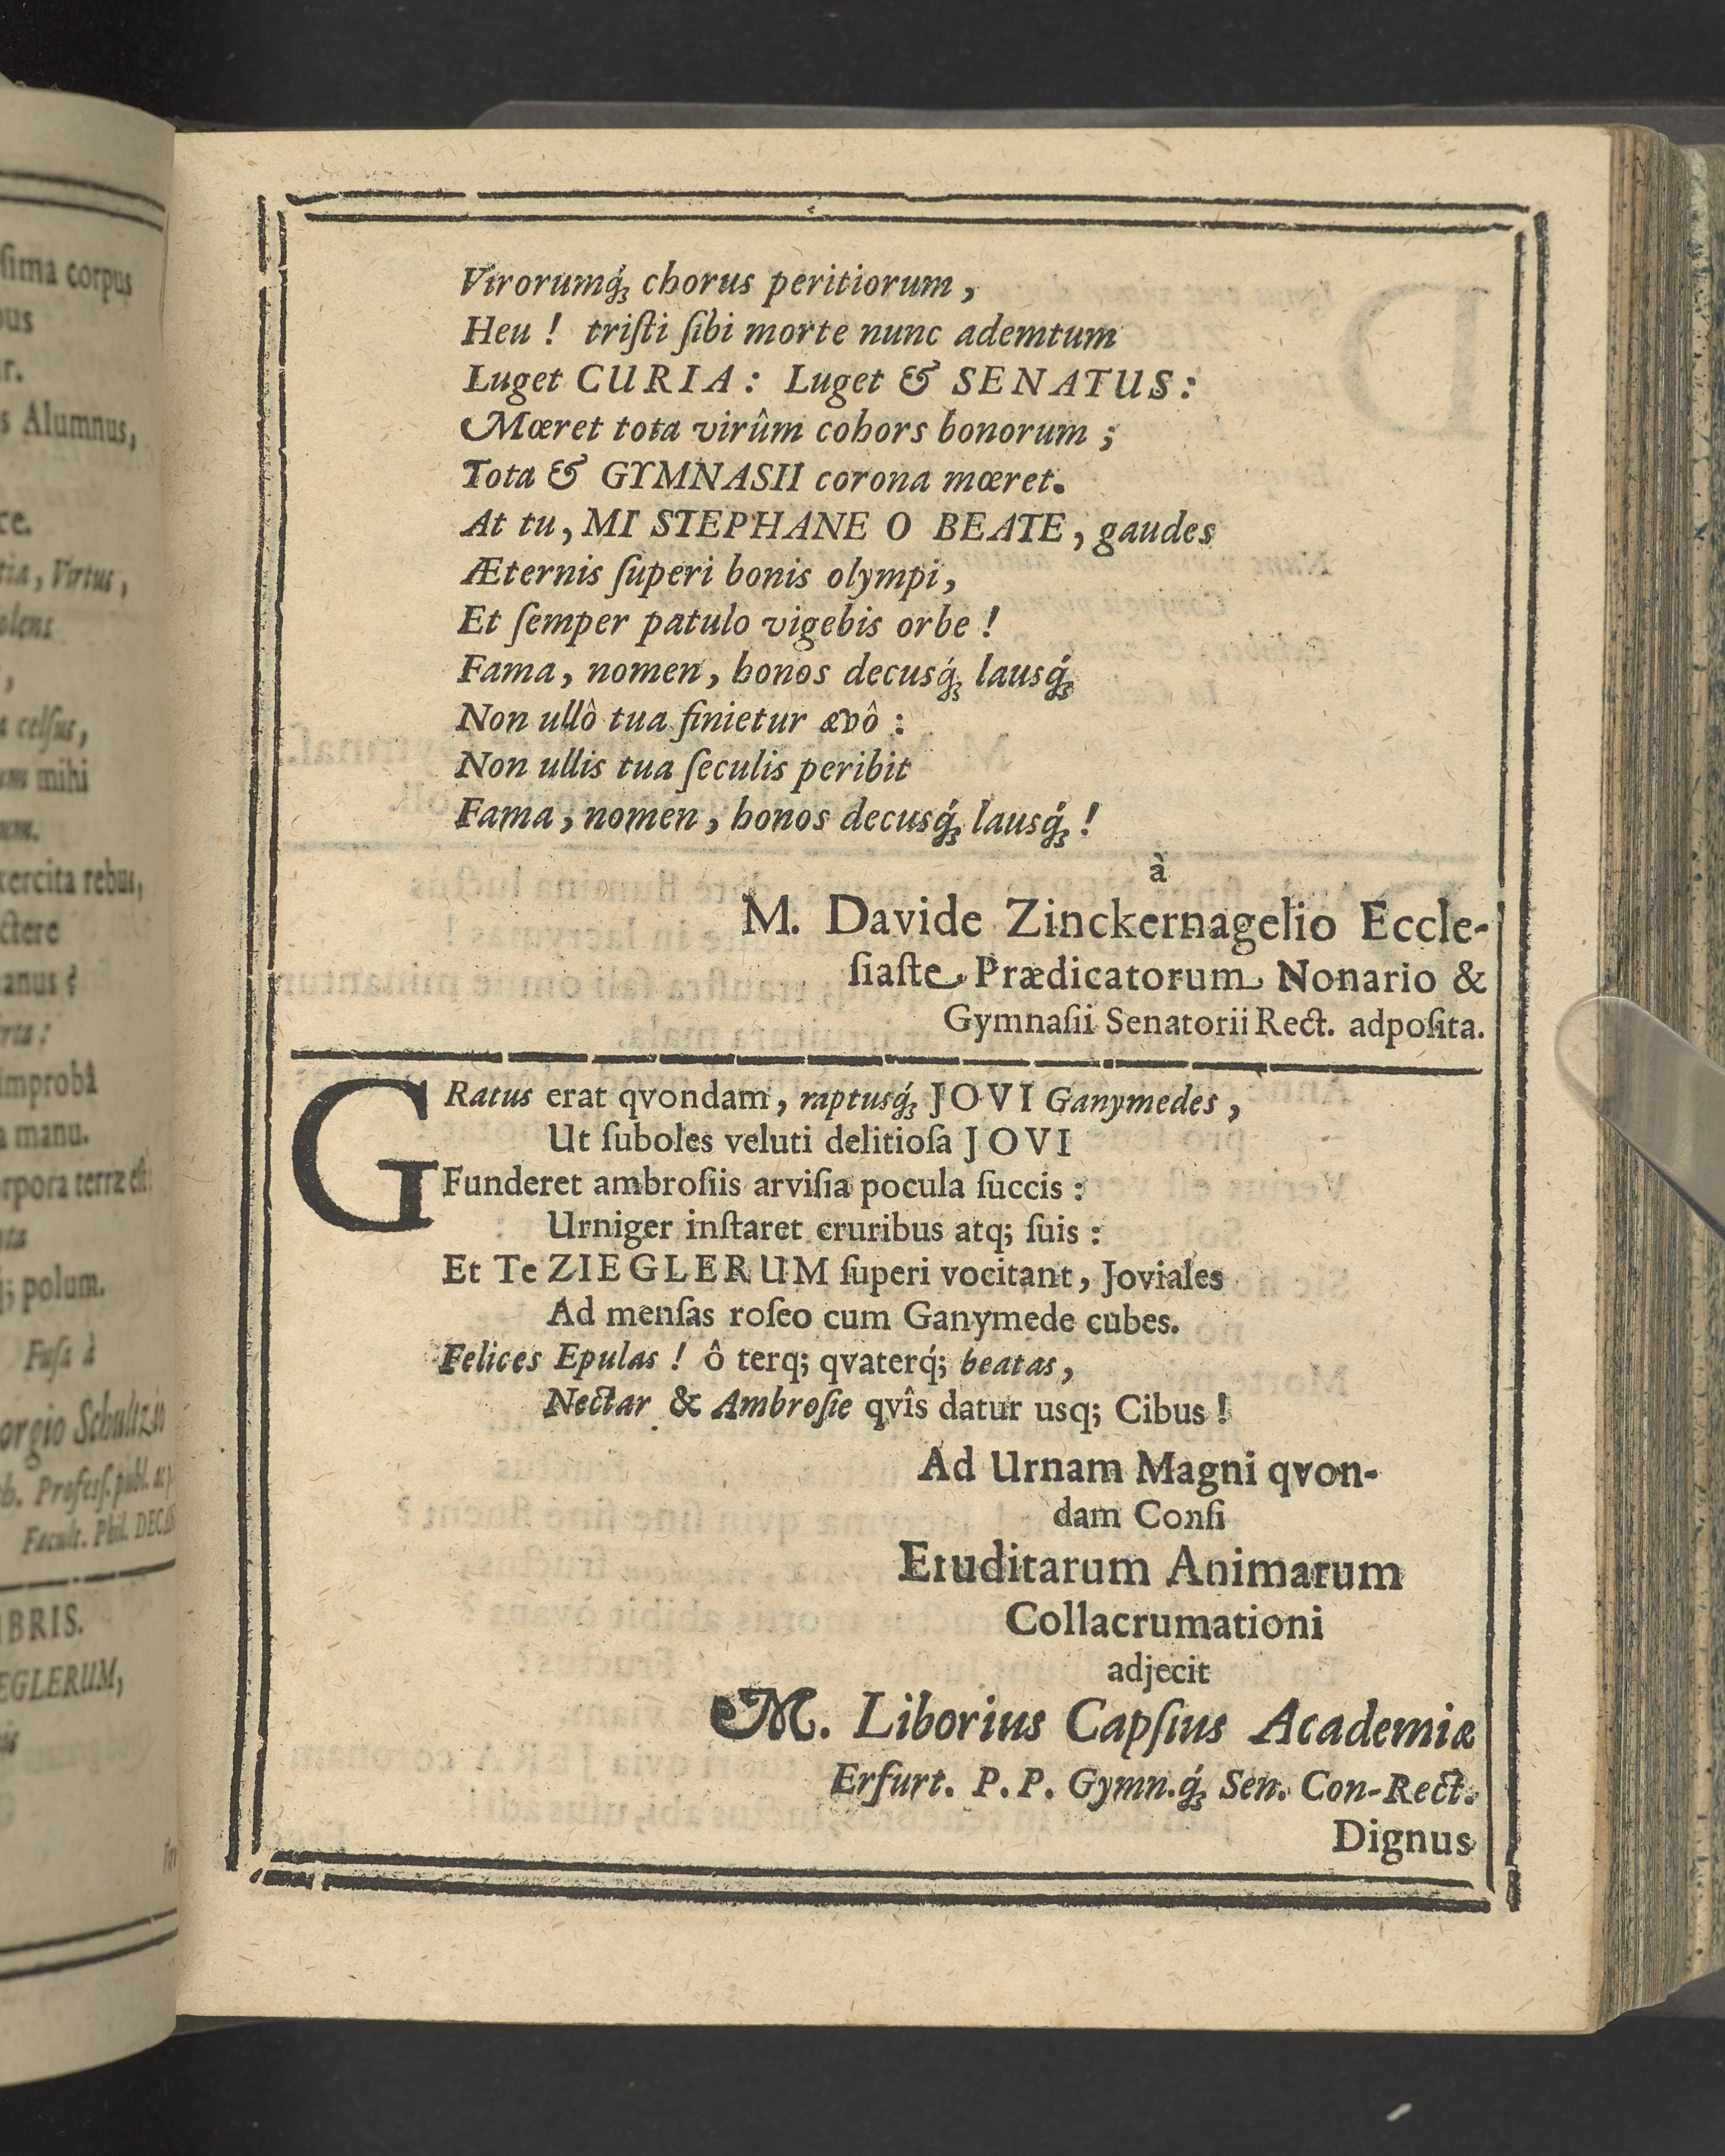 Virorumq́; chorus peritiorum,
Heu! triſti ſibi morte nunc ademtum
Luget CURIA: Luget & SENATUS:
Mœret tota virûm cohors bonorum;
Tota & GYMNASII corona mœret.
At tu, MI STEPHANE O BEATE, gaudes
Æternis ſuperi bonis olympi,
Et ſemper patulo vigebis orbe!
Fama, nomen, honos decusq́; lausq́;
Non ullô tua finietur ævô:
Non ullis tua ſeculis peribit
Fama, nomen, honos decusq́; lausq́;!
à
M. Davide Zinckernagelio Eccle-
ſiaſte Prædicatorum Nonario &
Gymnaſii Senatorii Rect. adpoſita.
GRatus erat qvondam, raptusq́; JOVI Ganymedes,
Ut ſuboles veluti delitioſa JOVI
Funderet ambroſiis arviſia pocula ſuccis:
Urniger inſtaret cruribus atq; ſuis:
Et Te ZIEGLERUM ſuperi vocitant, Joviales
Ad menſas roſeo cum Ganymede cubes.
Felices Epulas! ô terq; qvaterq́; beatas,
Nectar & Ambroſie qvîs datur usq; Cibus!
Ad Urnam Magni qvon-
dam Conſi
Eruditarum Animarum
Collacrumationi
adjecit
M. Liborius Capſius Academiæ
Erfurt. P. P. Gymn.q́; Sen. Con-Rect.
Dignus
ſima corpus
s Alumnus,
ce.
tia, Virtus,
celſus,
mihi
xercita rebus,
ctere
improbâ
manu.
rpora terræ eſt
polum.
Fuſa à
orgio Schultzio
Profeſſ. publ.
Facult. Phil.
BRIS.
EGLERUM,